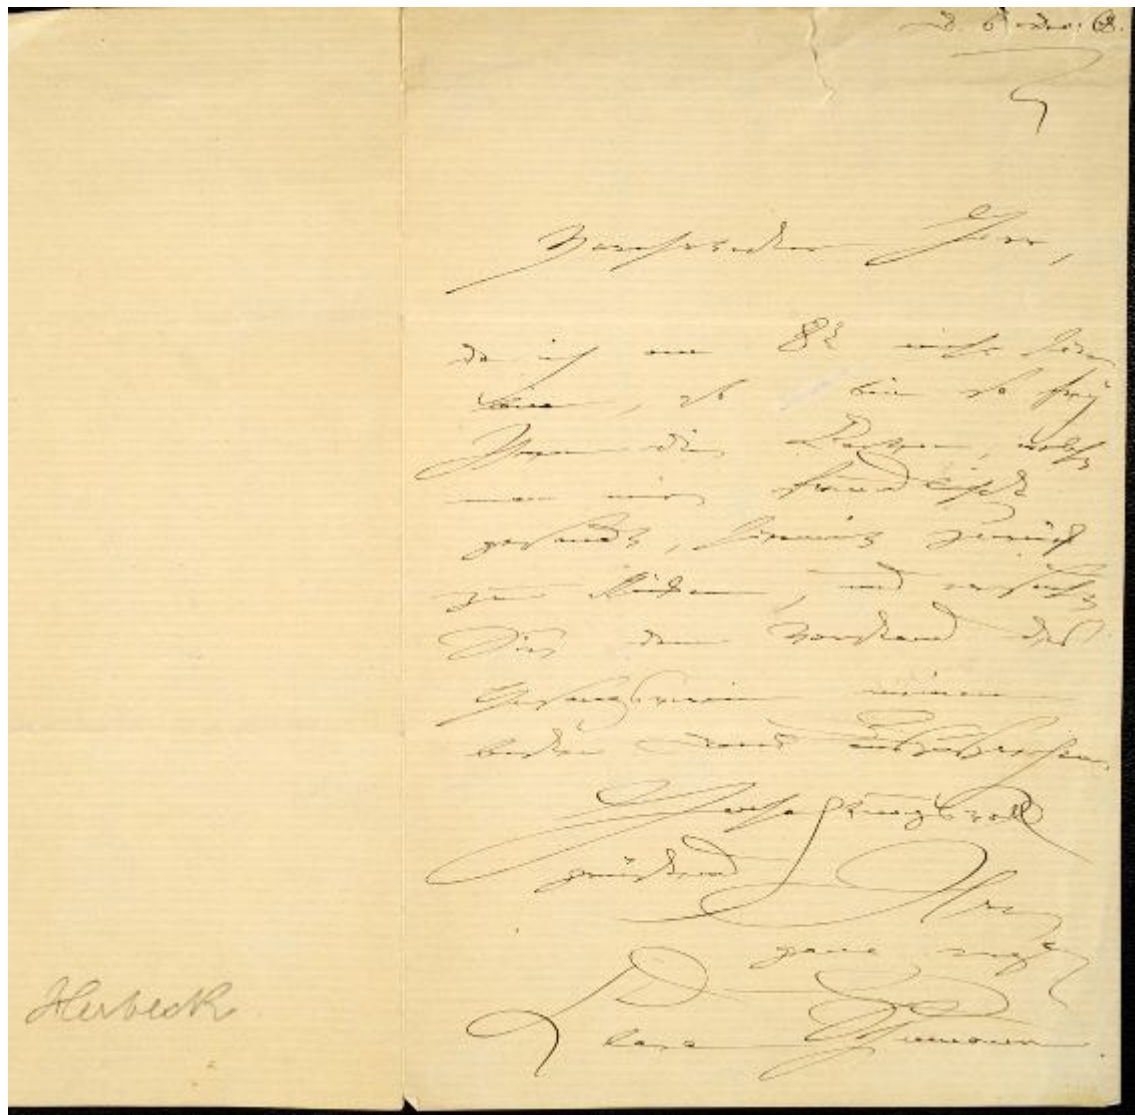 D. 6 Dec. 68.
Verehrtester Herr,
da ich am 8t nicht hier
bin, so bin so frey
Ihnen die Karten, welche
man mir freundlichst
gesandt, hiermit zurück
zu schicken, und ersuche
Sie dem Vorstand des
Gesangverein meinen
besten Dank auszusprechen.
Hochachtungsvoll
grüßend
Ihre
ganz erg.
Clara Schumann.
Herbeck